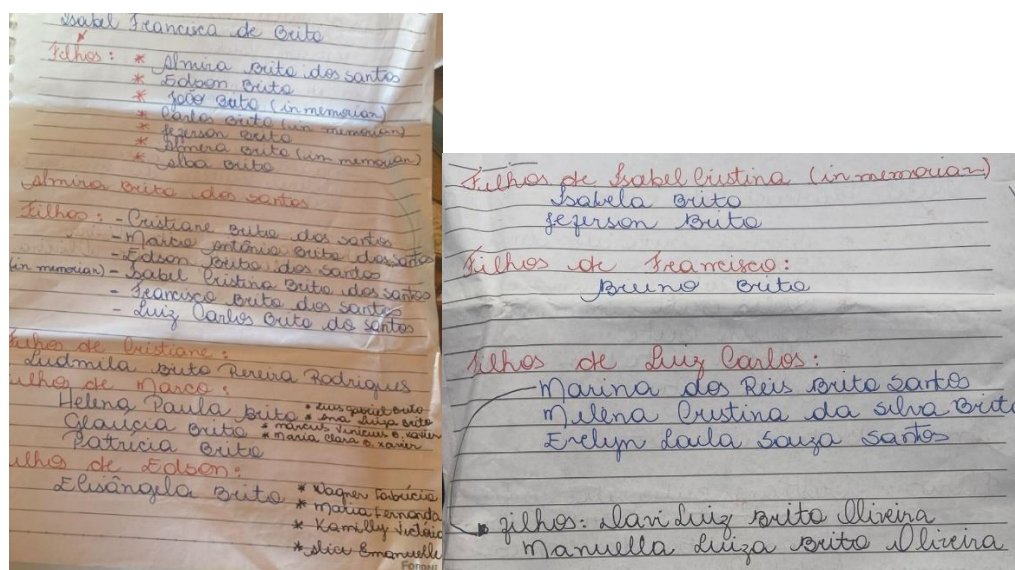 Isabel Francisca de Brito
Filhos: * Almira Brito dos santos
* Edson Brito
* João Brito (in memorian)
* Carlos Brito (in memorian)
* Jeferson Brito
* Almera Brito (in memorian)
* Alba Brito
Almira Brito dos santos
Filhos: - Cristiane Brito dos santos
- Marco Antônio Brito dos santos
- Edson Brito dos santos
(in memorian) - Isabel Cristina Brito dos santos
- Francisco Brito dos santos
- Luiz Carlos Brito do santos
Filhos de Cristiane:
Ludmila Brito Pereira Rodrigues
Filhos de Marco:
Helena Paula Brito * Luis gabriel Brito
* Ana Luiza Brito
Glaucia Brito * marcus Vinicius B. xavier
* maria clara B. xavier
Patrícia Brito
ilhos de Edson:
Elisângela Brito * Wagner Fabrício
* Maria Fernanda
* Kamilly Victória
* Alice Emanuelle
Foroni
Filhos de Isabel Cristina (in memorian)
Isabela Brito
Jeferson Brito
Filhos de Francisco:
Bruno Brito
Filhos de Luiz Carlos:
Marina dos Reis Brito Santos
Milena Cristina da silva Brito
Evelyn Laila Souza Santos
filhos: Davi Luiz Brito Oliveira
Manuella Luiza Brito Oliveira